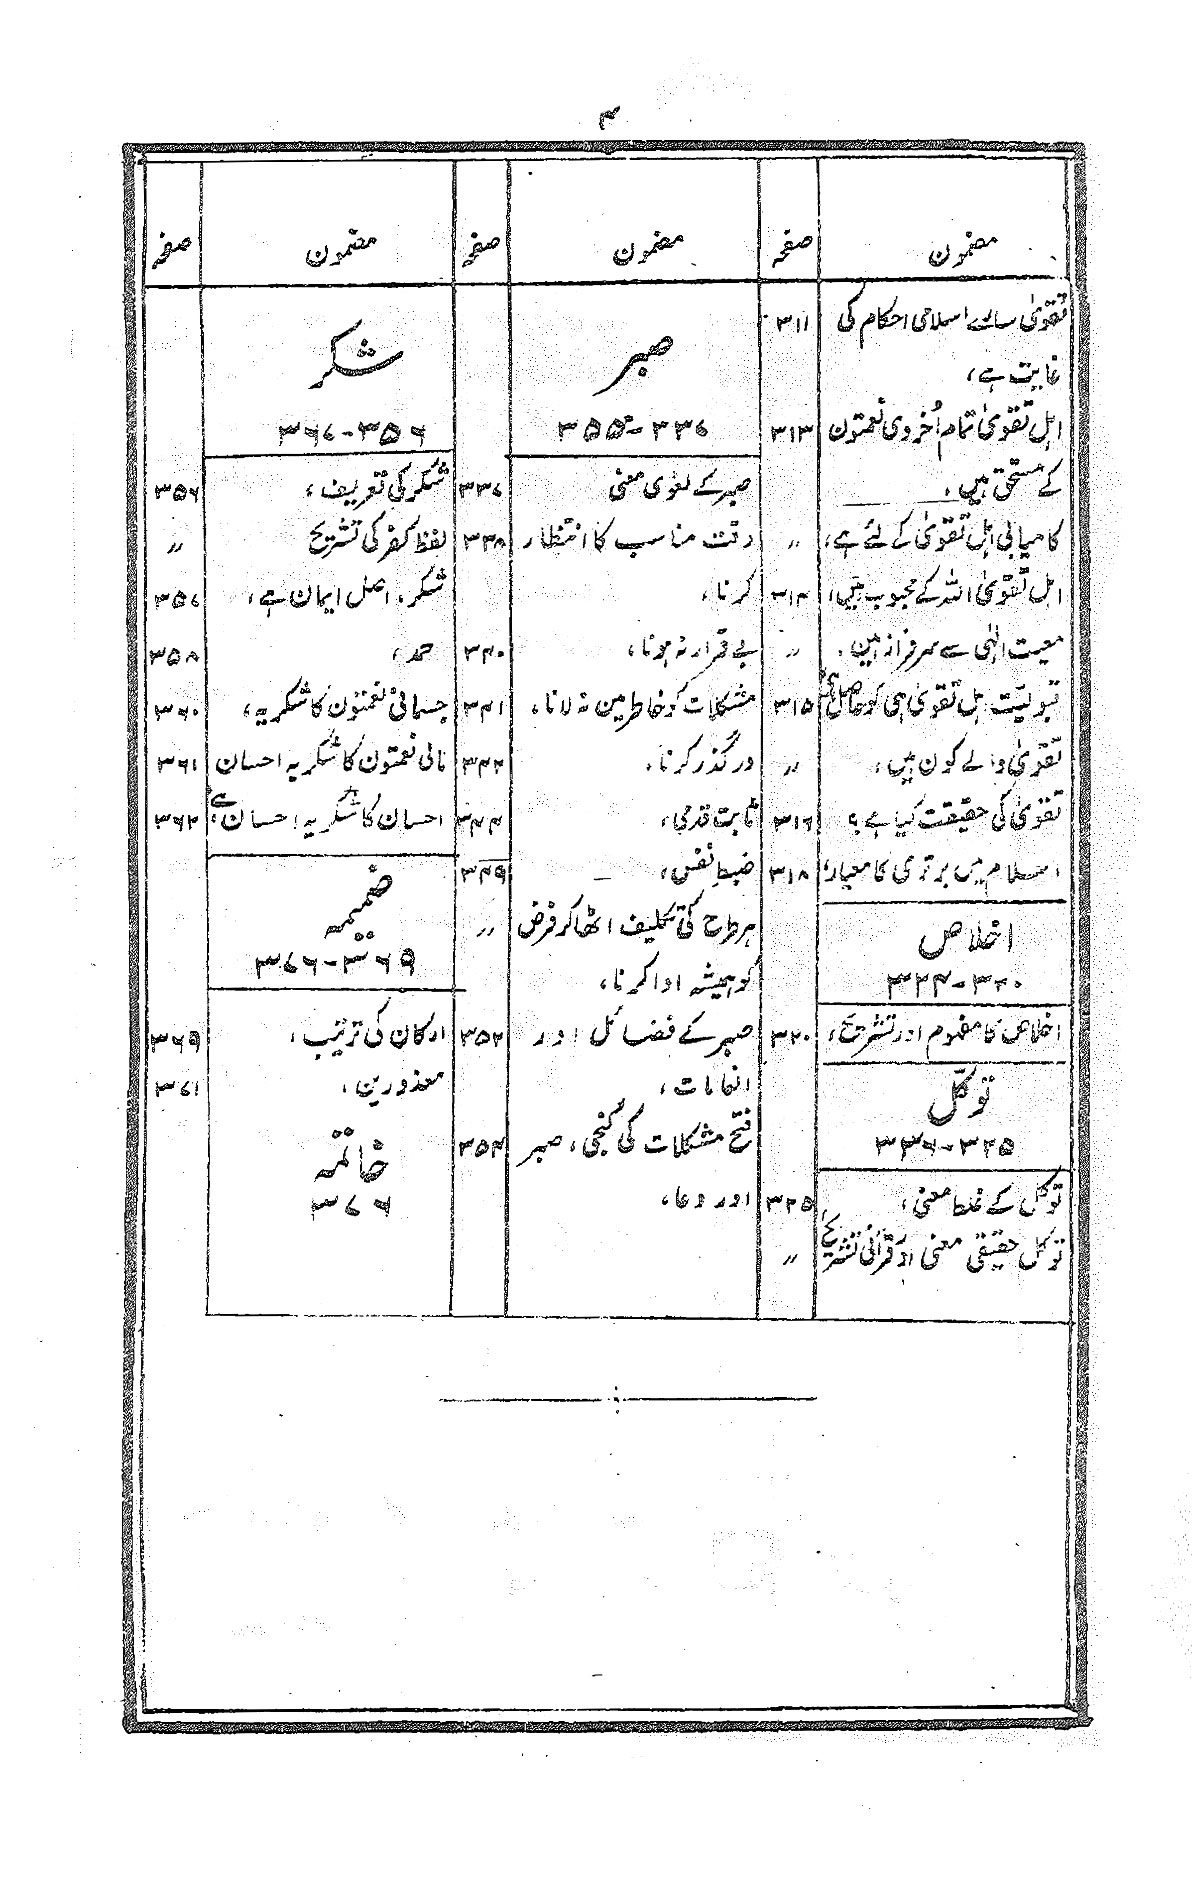 ۴
مضمون صفحہ مضمون صفحہ مضمون صفحہ
تقویٰ سارے اسلامی احکام کی ۳۱۱
غایت ہے،
اہل تقویٰ تمام اُخروی نعمتون ۳۱۳
کے مستحق ہیں۔
کامیابی اہل تقویٰ کے لئے ہے، 〃
اہل تقویٰ اللہ کے محبوب ہیں، ۳۱۴
معیت الٰہی سے سرفراز ہین۔ 〃
قبولیّت اہل تقویٰ ہی کو حاصل ہے، ۳۱۵
تقویٰ والے کون ہیں، 〃
تقویٰ کی حقیقت کیا ہے؟ ۳۱۶
اسلام میں برتری کا معیار، ۳۱۸
اخلاص
۳۲۰-۳۲۴
اخلاص کا مفہوم اور تشریح، ۳۲۰
توکّل
۳۲۵-۳۳۶
توکل کے غلط معنی، ۳۲۵
توکل حقیقی معنی اور قرآنی تشریح 〃
صبر
۳۳۷-۳۵۵
صبر کے لغوی معنی ۳۳۷
وقت مناسب کا انتظار ۳۳۸
کرنا،
بے قرار نہ ہونا، ۳۴۰
مشکلات کو خاطر مین نہ لانا، ۳۴۱
درگذر کرنا، ۳۴۲
ثابت قدمی، ۳۴۴
ضبطِ نفس، ۳۴۹
ہر طرح کی تکلیف اٹھا کر فرض 〃
کو ہمیشہ ادا کرنا،
صبر کے فضائل اور ۳۵۲
انعامات،
فتح مشکلات کی کنجی، صبر ۳۵۴
اور دعا،
شکر
۳۵۶-۳۶۷
شکر کی تعریف، ۳۵۶
لفظ کفر کی تشریح 〃
شکر، اصل ایمان ہے، ۳۵۷
حمد، ۳۵۸
جسمانی نعمتون کا شکریہ، ۳۶۰
مالی نعمتون کا شکریہ احسان ۳۶۱
احسان کا شکریہ احسان ہے، ۳۶۲
ضمیمہ
۳۶۹-۳۷۶
ارکان کی ترتیب، ۳۶۹
معذورین، ۳۷۱
خاتمہ
۳۷۶